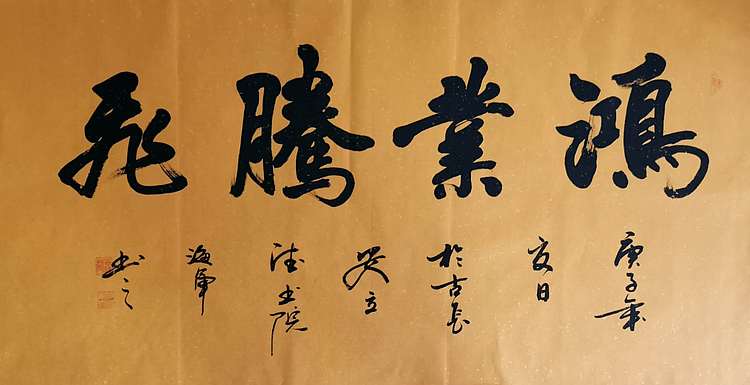 鴻業騰飛
庚子年
夏日
於古長
安立
德书院
海軍
书之